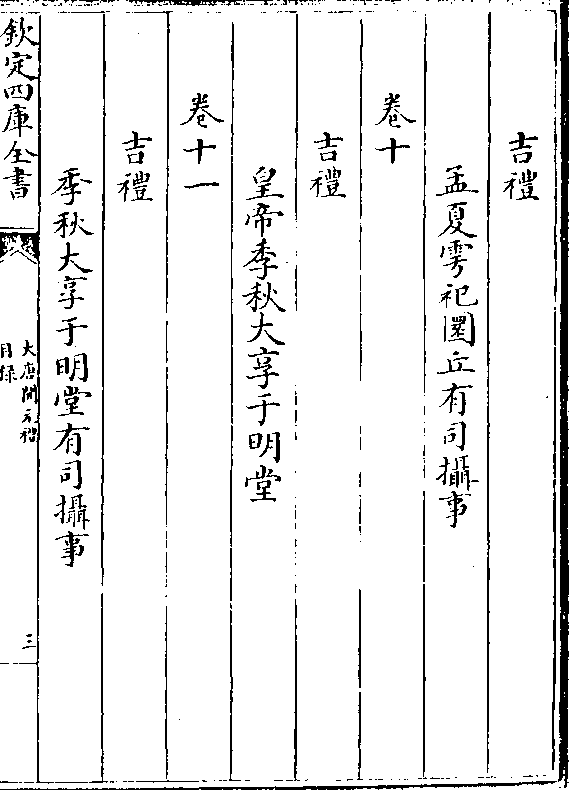 吉禮
孟夏雩祀圜丘有司攝事
卷十
吉禮
皇帝季秋大享于明堂
卷十一
吉禮
季秋大享于明堂有司攝事
欽定四庫全書
大唐開元禮
目録
三